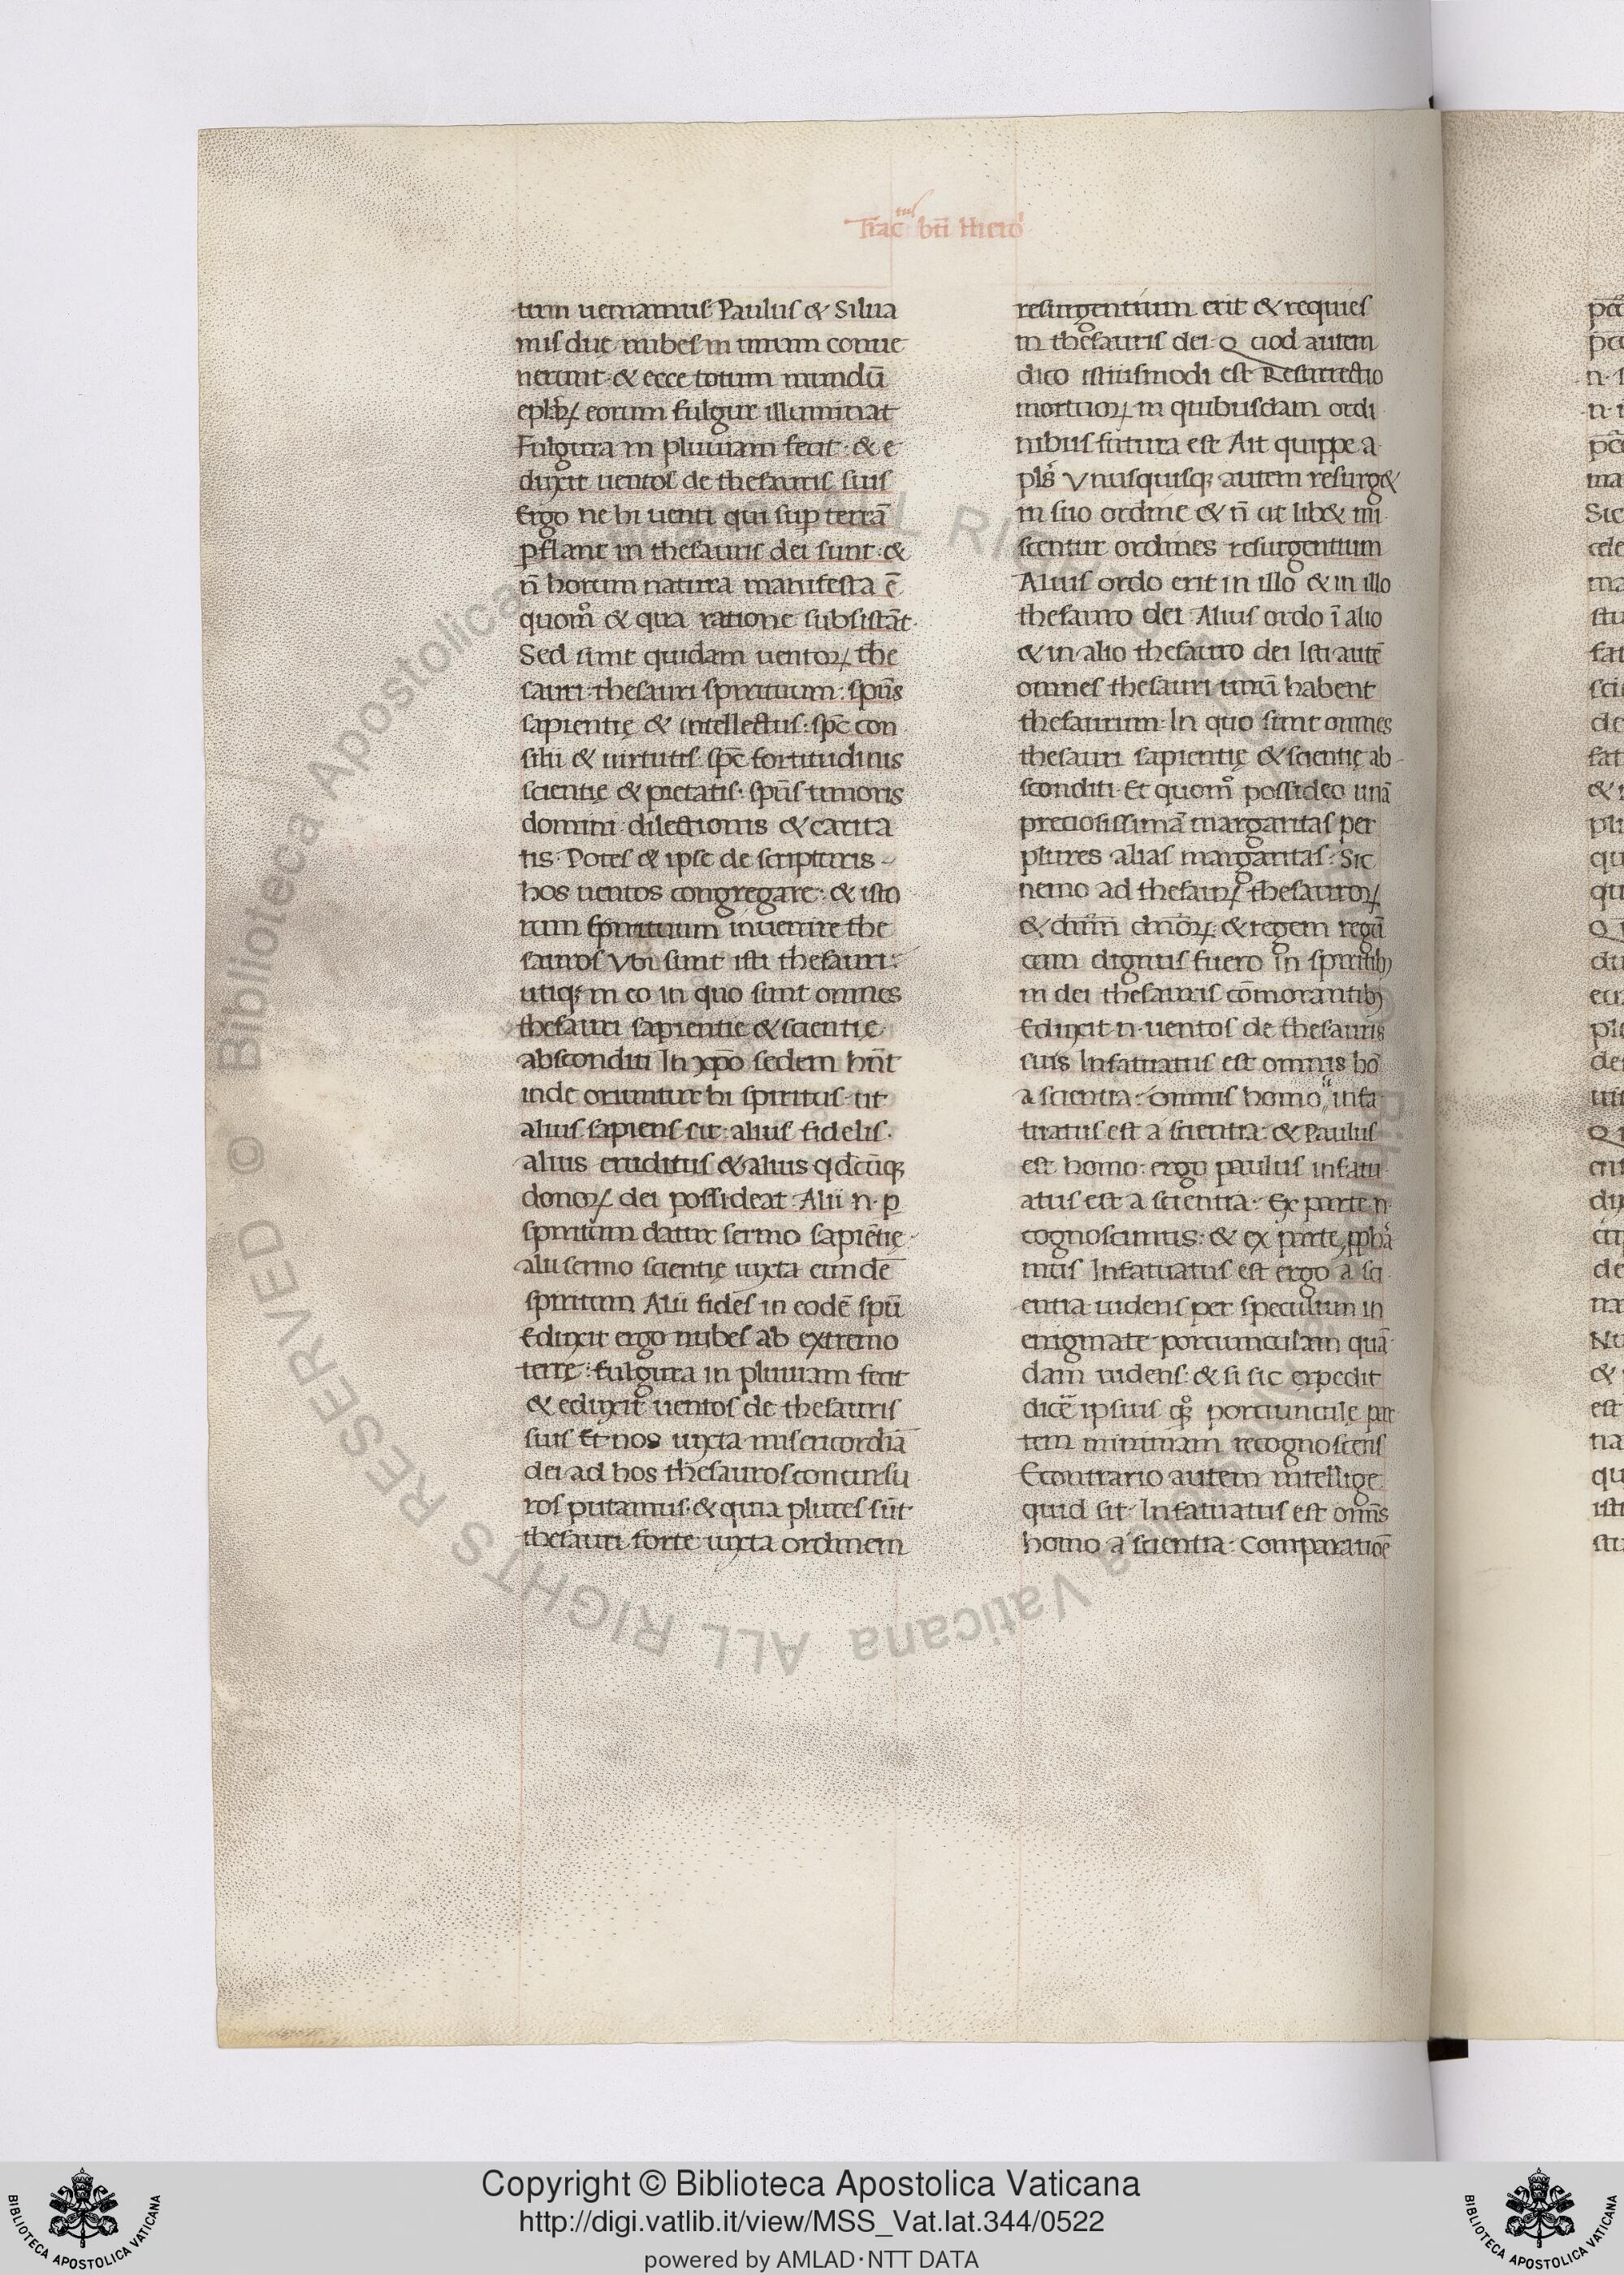 Tractus bti Hiero
tum ueniamus Paulus & Silua
nus due nubes in unum conue
nerunt · & ecce totum mundū
eplarꝝ eorum fulgur illuminat
Fulgura in pluuiam fecit · & e
duxit uentos de thesauris suis
Ergo ne hi uenti qui sup terrā
pflant in thesauris dei sunt · &
n̄ horum natura manifesta ē
quom̊ & qua ratione subsistāt ·
Sed sunt quidam uentoꝝ the
sauri : thesauri spirituum : spūs
sapientię & intellectus : spc̄ con
silii & uirtutis · spc̄ fortitudinis
scientię & pietatis · spūs timoris
domini · dilectionis & carita
tis · Potes & ipse de scripturis –
hos uentos congregare : & isto
rum spirituum inuenire the
sauros Vbi sunt isti thesauri :
utiq; in eo in quo sunt omnes
thesauri sapientie & scientię
absconditi In xp̄o sedem hn̄t
inde oriuntur hi spiritus · ut
alius sapiens sit · alius fidelis ·
alius eruditus & alius qdcūq;
donoꝝ dei possideat · Alii · n · ꝑ
spiritum datur sermo sapiētię ·
alii sermo scientię iuxta eundē
spiritum Alii fides in eodē spū
Eduxit ergo nubes ab extremo
terrę : fulgura in pluuiam fecit
& eduxit uentos de thesauris
suis Et nos iuxta misericordiā
dei ad hos thesauros concursu
ros putamus · & quia plures sūt
thesauri forte iuxta ordinem
resurgentium erit & requies
in thesauris dei · Quod autem
dico istiusmodi est Resurrectio
mortuoꝝ in quibusdam ordi
nibus futura est Ait quippe a
pls̄ Vnusquisq; autem resurg&
in suo ordine & n̄ ut lib& mi
scentur ordines resurgentium
Alius ordo erit in illo & in illo
thesauro dei · Alius ordo ī alio
& in alio thesauro dei Isti autē
omnes thesauri unū habent
thesaurum · In quo sunt omnes
thesauri sapientię & scientię ab -
sconditi · Et quom̊ possideo unā
preciosissimā margaritas per
plures alias margaritas : Sic
uenio ad thesaurꝝ thesauroꝝ
& dn̄m dn̄oꝝ · & regem regū
cum dignus fuero in spiritib;
in dei thesauris cōmorantib;
Eduxit · n · uentos de thesauris
suis Infatuatus est omnis ho
a scientia : omnis homo infa
tuatus est a scientia · & Paulus
est homo : ergo paulus infatu
atus est a scientia · Ex parte · n ·
cognoscimus : & ex parte ppha
mus Infatuatus est ergo a sci
entia uidens per speculum in
enigmate portiunculam quā
dam uidens : & si sic expedit
dicē ipsius portiuncule par
tem minimam recognoscens
Econtrario autem intellige
quid sit · Infatuatus est omīs
homo a scientia : Comparatiōe
Copyright © Biblioteca Apostolica Vaticana
http://digi.vatlib.it/view/MSS_Vat.lat.344/0522
powered by AMLAD·NTT DATA
BIBLIOTECA APOSTOLICA VATICANA
BIBLIOTECA APOSTOLICA VATICANA